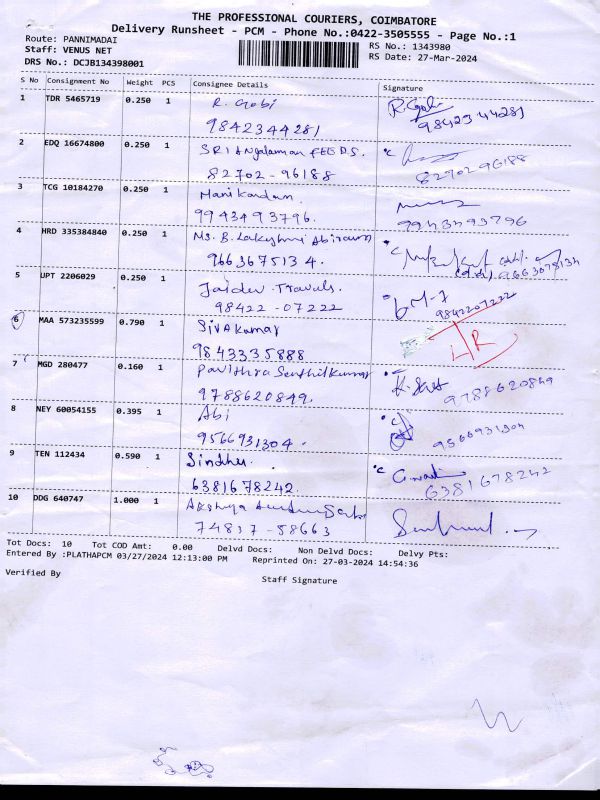 THE PROFESSIONAL COURIERS, COIMBATORE
Delivery Runsheet - PCM - Phone No.:0422-3505555 - Page No.:1
Route: PANNIMADAI
RS No.: 1343980
Staff: VENUS NET
RS Date: 27-Mar-2024
DRS No.: DCJB134398001
S No Consignment No Weight PCS Consignee Details Signature
1 TDR 5465719 0.250 1 R. Gobi R. Gobi
9842344281 9842344281
2 EDQ 16674800 0.250 1 SRI Angalamman FEEDS.
82702-96188 8270296188
3 TCG 10184270 0.250 1 Manikandan.
9943493796. 9943493796
4 HRD 335384840 0.250 1 Ms. B. Lakshmi Abirami
9663675134.
5 UPT 2206029 0.250 1 Jaidev Travels.
98422-07222 9842207222
6 MAA 573235599 0.790 1 Sivakumar
9843335888
7 MGD 280477 0.160 1 Pavithra Senthilkumar
9788620849. 9788620849
8 NEY 60054155 0.395 1 Abi
9566931304. 9566931304
9 TEN 112434 0.590 1 Sindhu.
6381678242 6381678242
10 DDG 640747 1.000 1 Akshya
74837-58663
Tot Docs: 10 Tot COD Amt: 0.00 Delvd Docs: Non Delvd Docs: Delvy Pts:
Entered By :PLATHAPCM 03/27/2024 12:13:00 PM Reprinted On: 27-03-2024 14:54:36
Verified By
Staff Signature